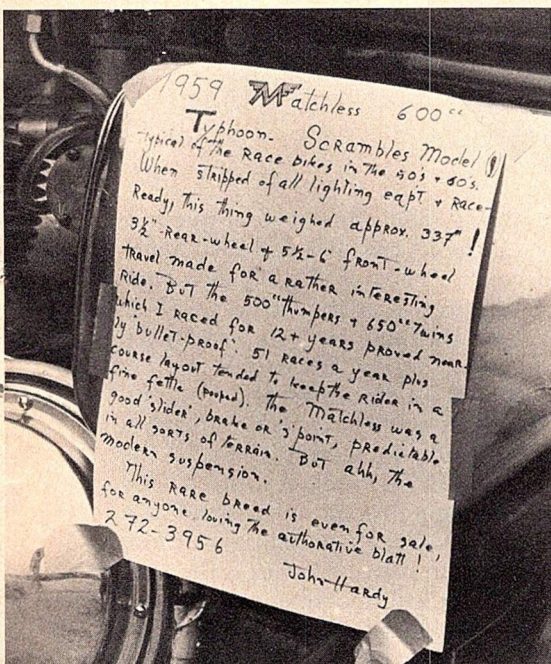 1959 Matchless 600cc
Typhoon- Scrambles Model (!)
Typical of the Race bikes in the 50's + 60's.
When stripped of all lighting eqpt + Race-
Ready, this thing weighed approx. 337# !
3½"-Rear-wheel + 5½-6" front-wheel
travel made for a rather interesting
Ride. But the 500cc thumpers + 650cc Twins
which I raced for 12+ years proved near-
ly bullet-proof. 51 races a year plus
course layout tended to keep the rider in a
fine fettle (pooped). The Matchless was a
good 'slider', brake or '3 point, predictable
in all sorts of terrain. But ahh, the
modern suspension.
This Rare breed is even for sale,
for anyone loving the authorative blatt !
272-3956
John Hardy